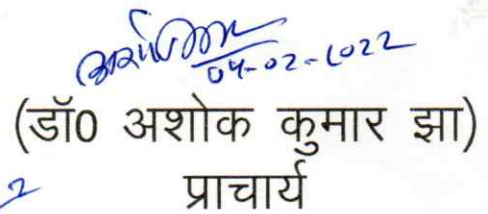 04-02-2022
(डॉ0 अशोक कुमार झा)
2
प्राचार्य